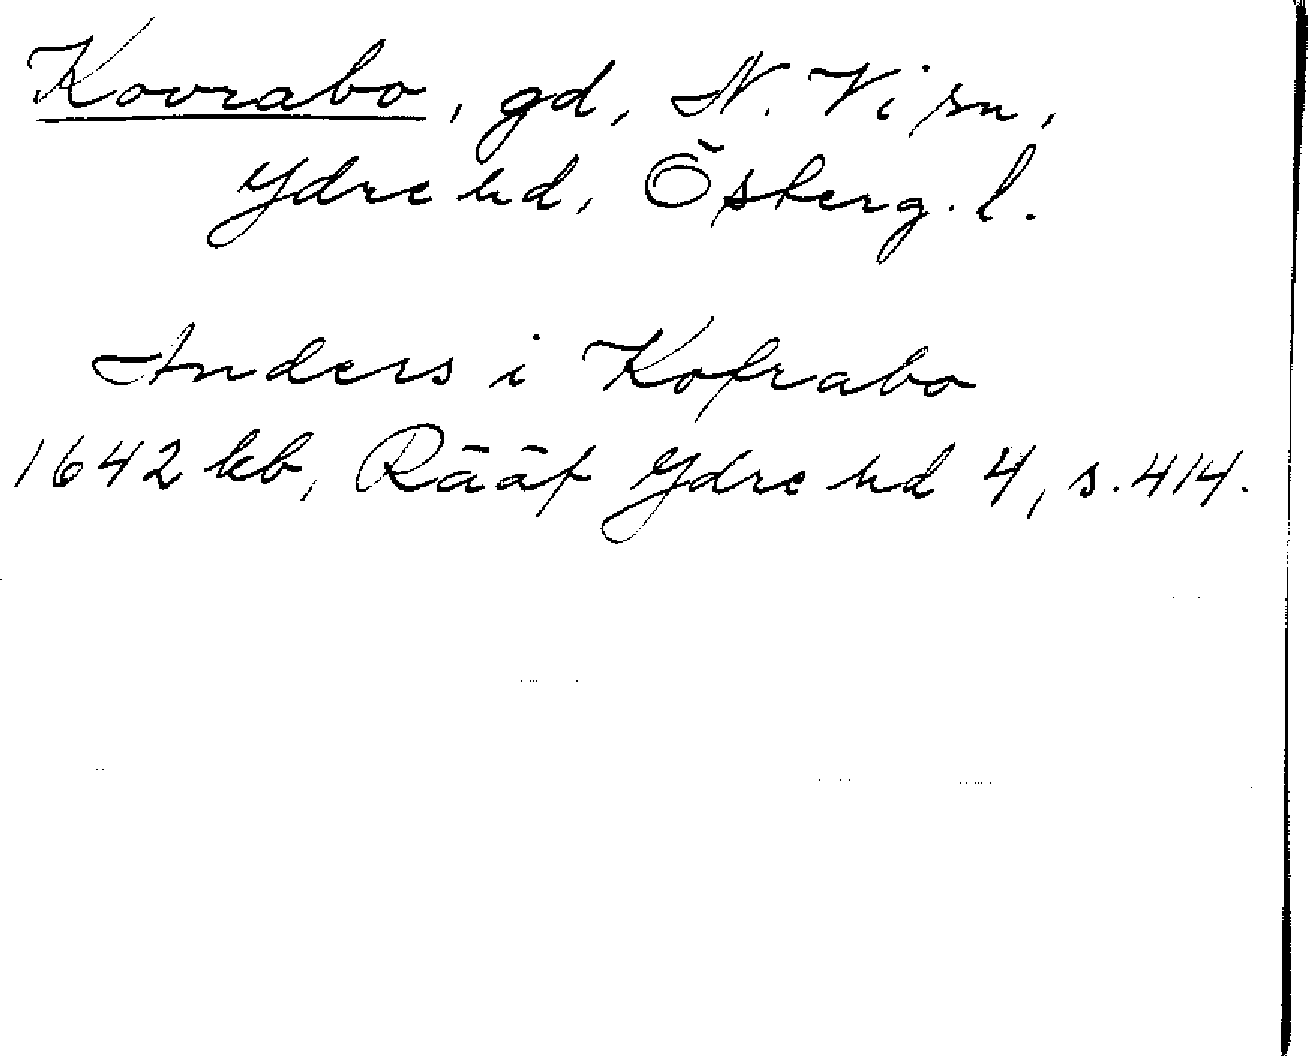 Kovrabo, gd, N. Vi sn,
Ydre hd, Österg. l.
Anders i Kofrabo
1642 kb, Rääf Ydre hd 4, s. 414.